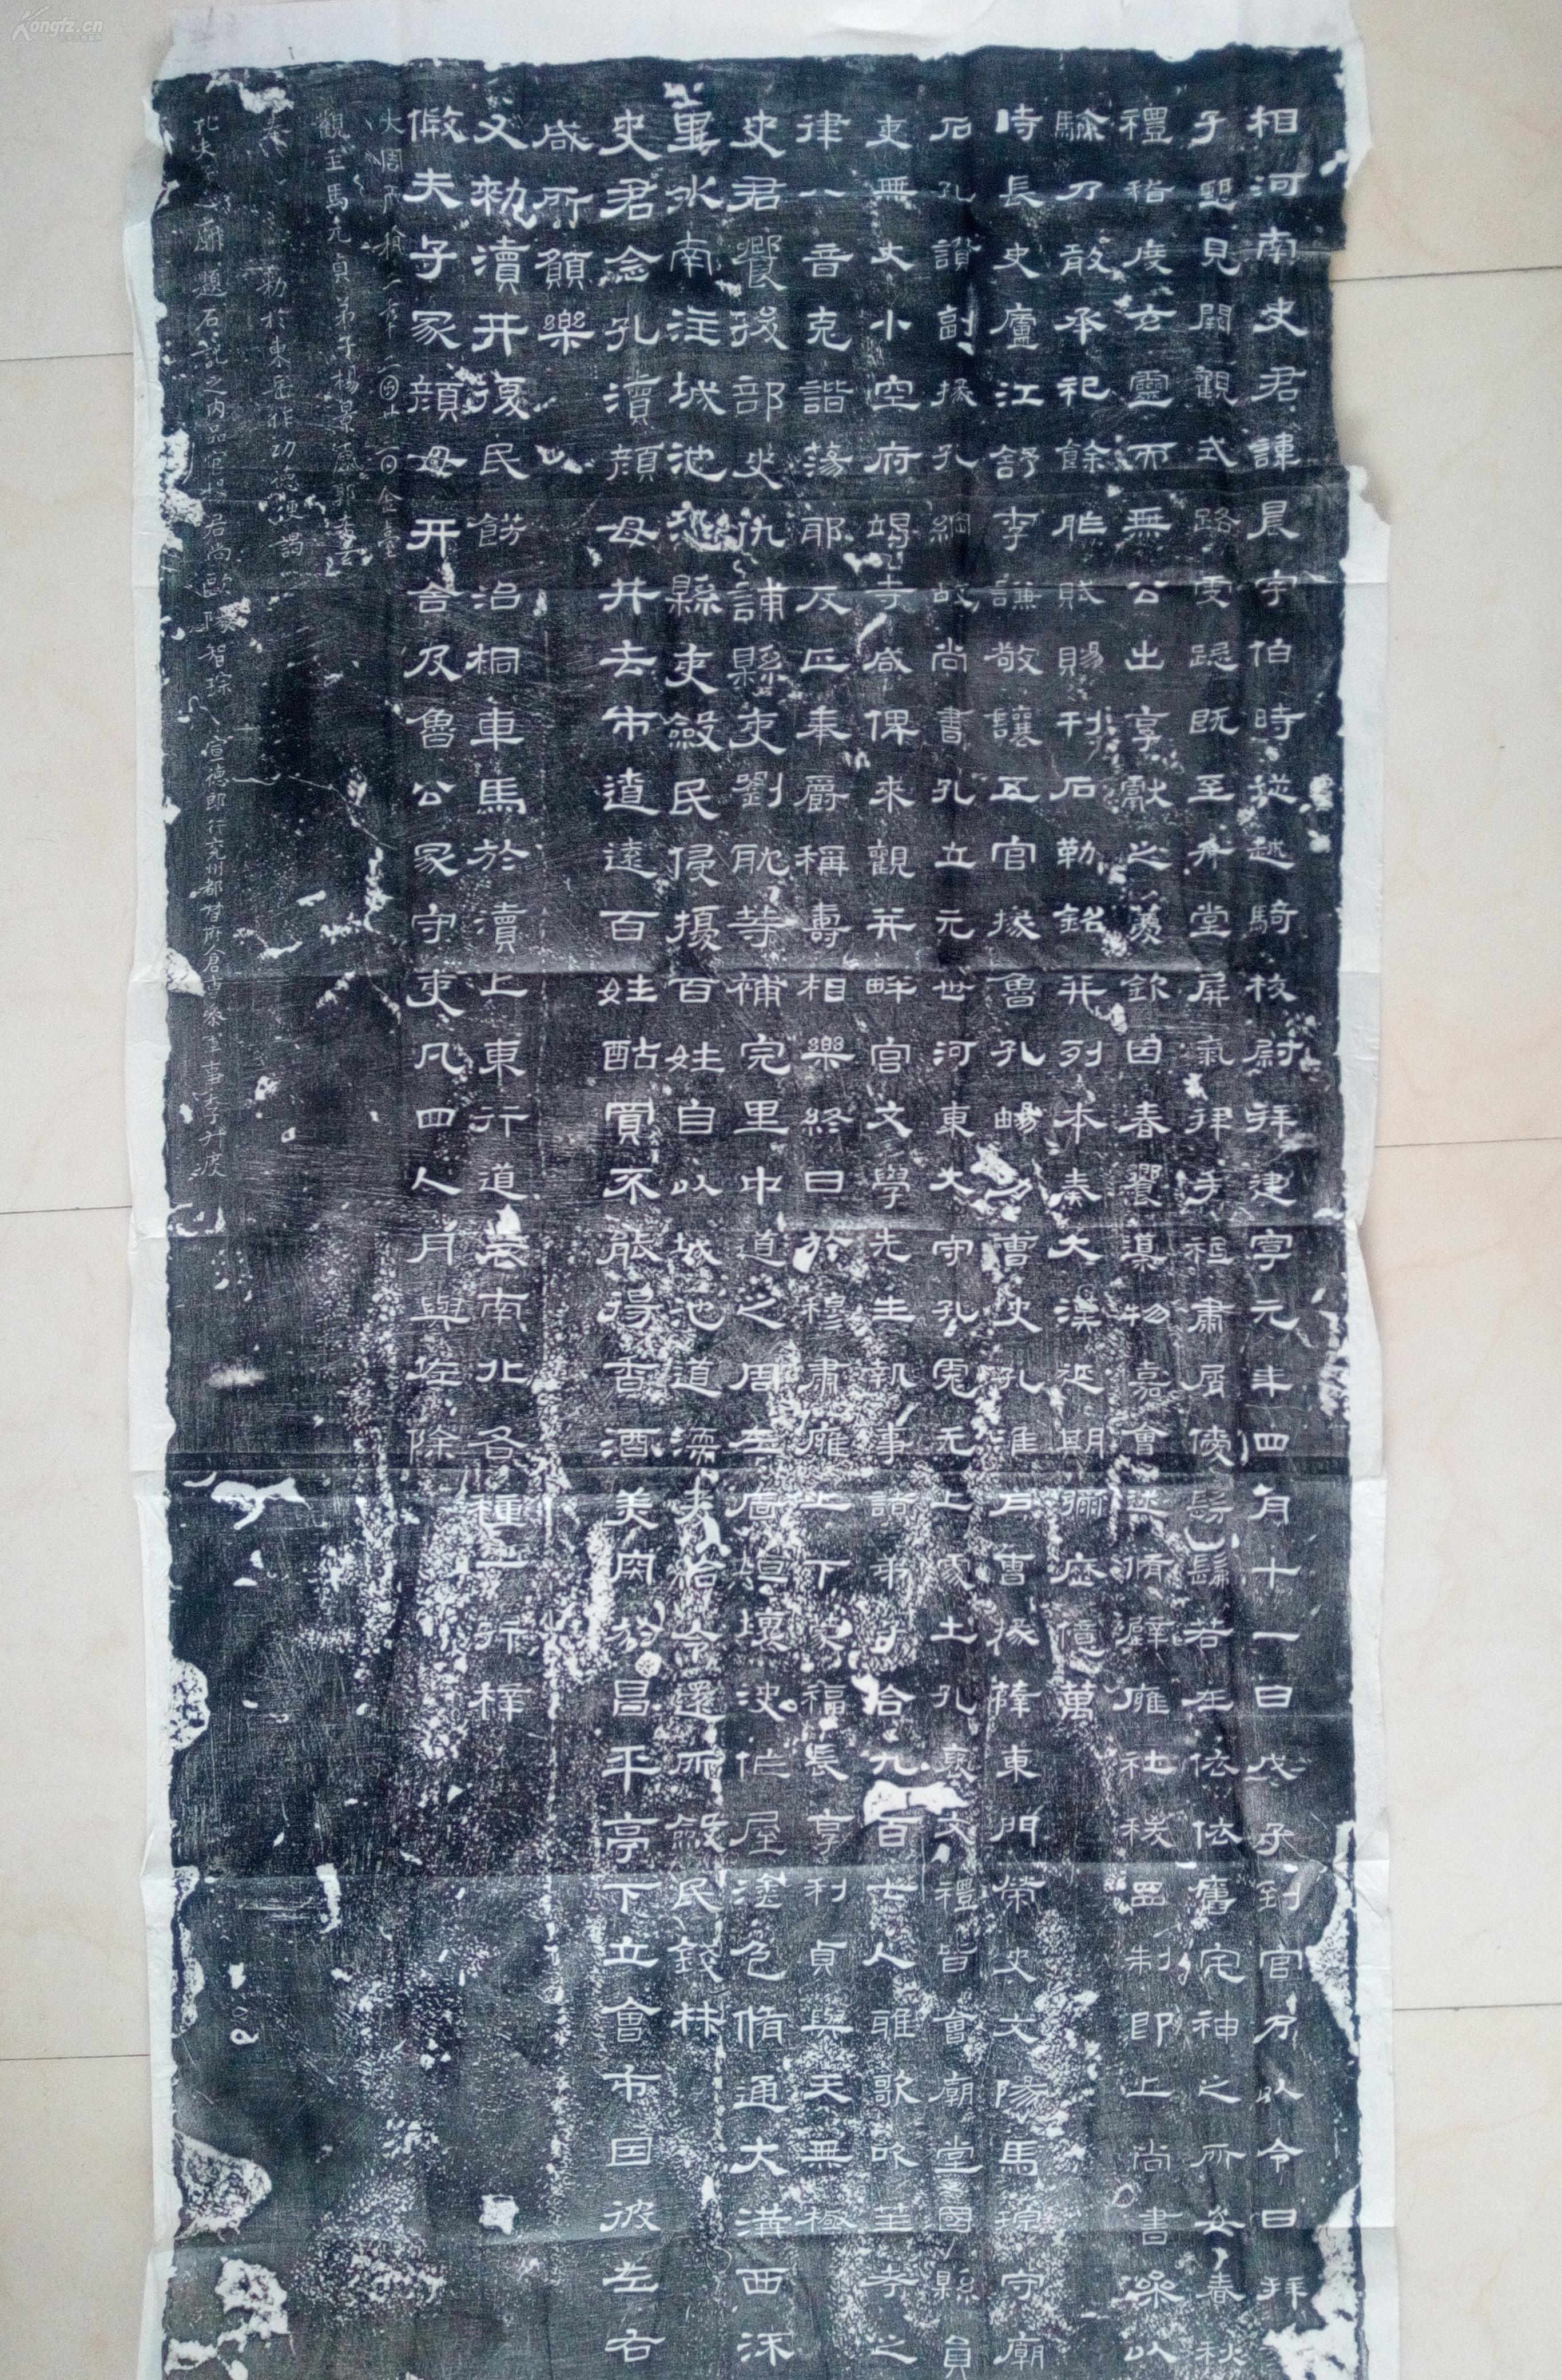 相河南史君諱晨字伯時從越騎校尉拜建寧元年四月十一日戊子到官乃以令日拜
子望見闕觀式路虔跽既至升堂屏氣拜手祗肅屑僾髣髴若在依依舊宅神之所安春秋
禮稽度玄靈而無公出享獻之薦欽因春饗導物嘉會述脩璧雍社稷品制即上尚書參以
驗乃敢承祀餘胙賦賜刊石勒銘并列本奏大漢延期彌歷億萬
時長史廬江舒李謙敬讓五官掾魯孔暢功曹史孔淮戶曹掾薛東門榮史文陽馬琮守廟
石孔讚副掾孔綱故尚書孔立元世河東大守孔彪元上處士孔褒文禮皆會廟堂國縣員
吏無大小空府竭寺咸俾來觀并畔宮文學先生執事諸弟子合九百七人雅歌吹笙考之
律八音克諧蕩耶反正奉爵稱壽相樂終日於穆肅雍上下蒙福長享利貞與天無極
史君饗後部史仇誧縣吏劉耽等補完里中道之周左廧垣壞決作屋塗色脩通大溝西流
里外南注城池恐縣吏斂民侵擾百姓自以城池道濡麥給令還所斂民錢材
史君念孔瀆顏母井去市遼遠百姓酤買不能得香酒美肉於昌平亭下立會市因彼左右
咸所願樂
又勑瀆井復民餝治桐車馬於瀆上東行道表南北各種一行梓
假夫子冢顏母井舍及魯公冢守吏凡四人月與佐除
大周天授二年二月廿三日金臺
觀主馬元貞弟子楊景郭希玄
奉勑於東岳作功德便謁
孔夫子之廟題石記之內品官楊君尚歐陽智琮 宣德郎行兗州都督府倉曹參軍事李叔度
Kongfz.cn